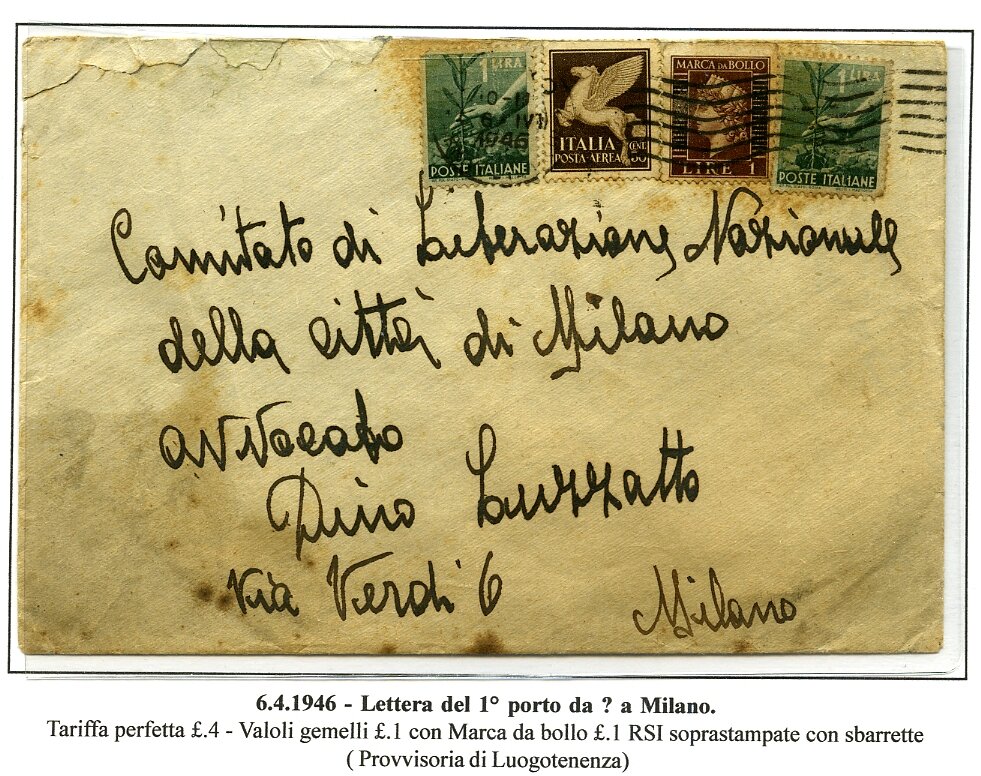 1 LIRA
POSTE ITALIANE
ITALIA
POSTA-AEREA CENT. 50
MARCA DA BOLLO
LIRE 1
1 LIRA
POSTE ITALIANE
1946
Comitato di Liberazione Nazionale
della città di Milano
avvocato
Dino Luzzatto
Via Verdi 6
Milano
6.4.1946 - Lettera del 1° porto da ? a Milano.
Tariffa perfetta £.4 - Valoli gemelli £.1 con Marca da bollo £.1 RSI soprastampate con sbarrette
( Provvisoria di Luogotenenza)